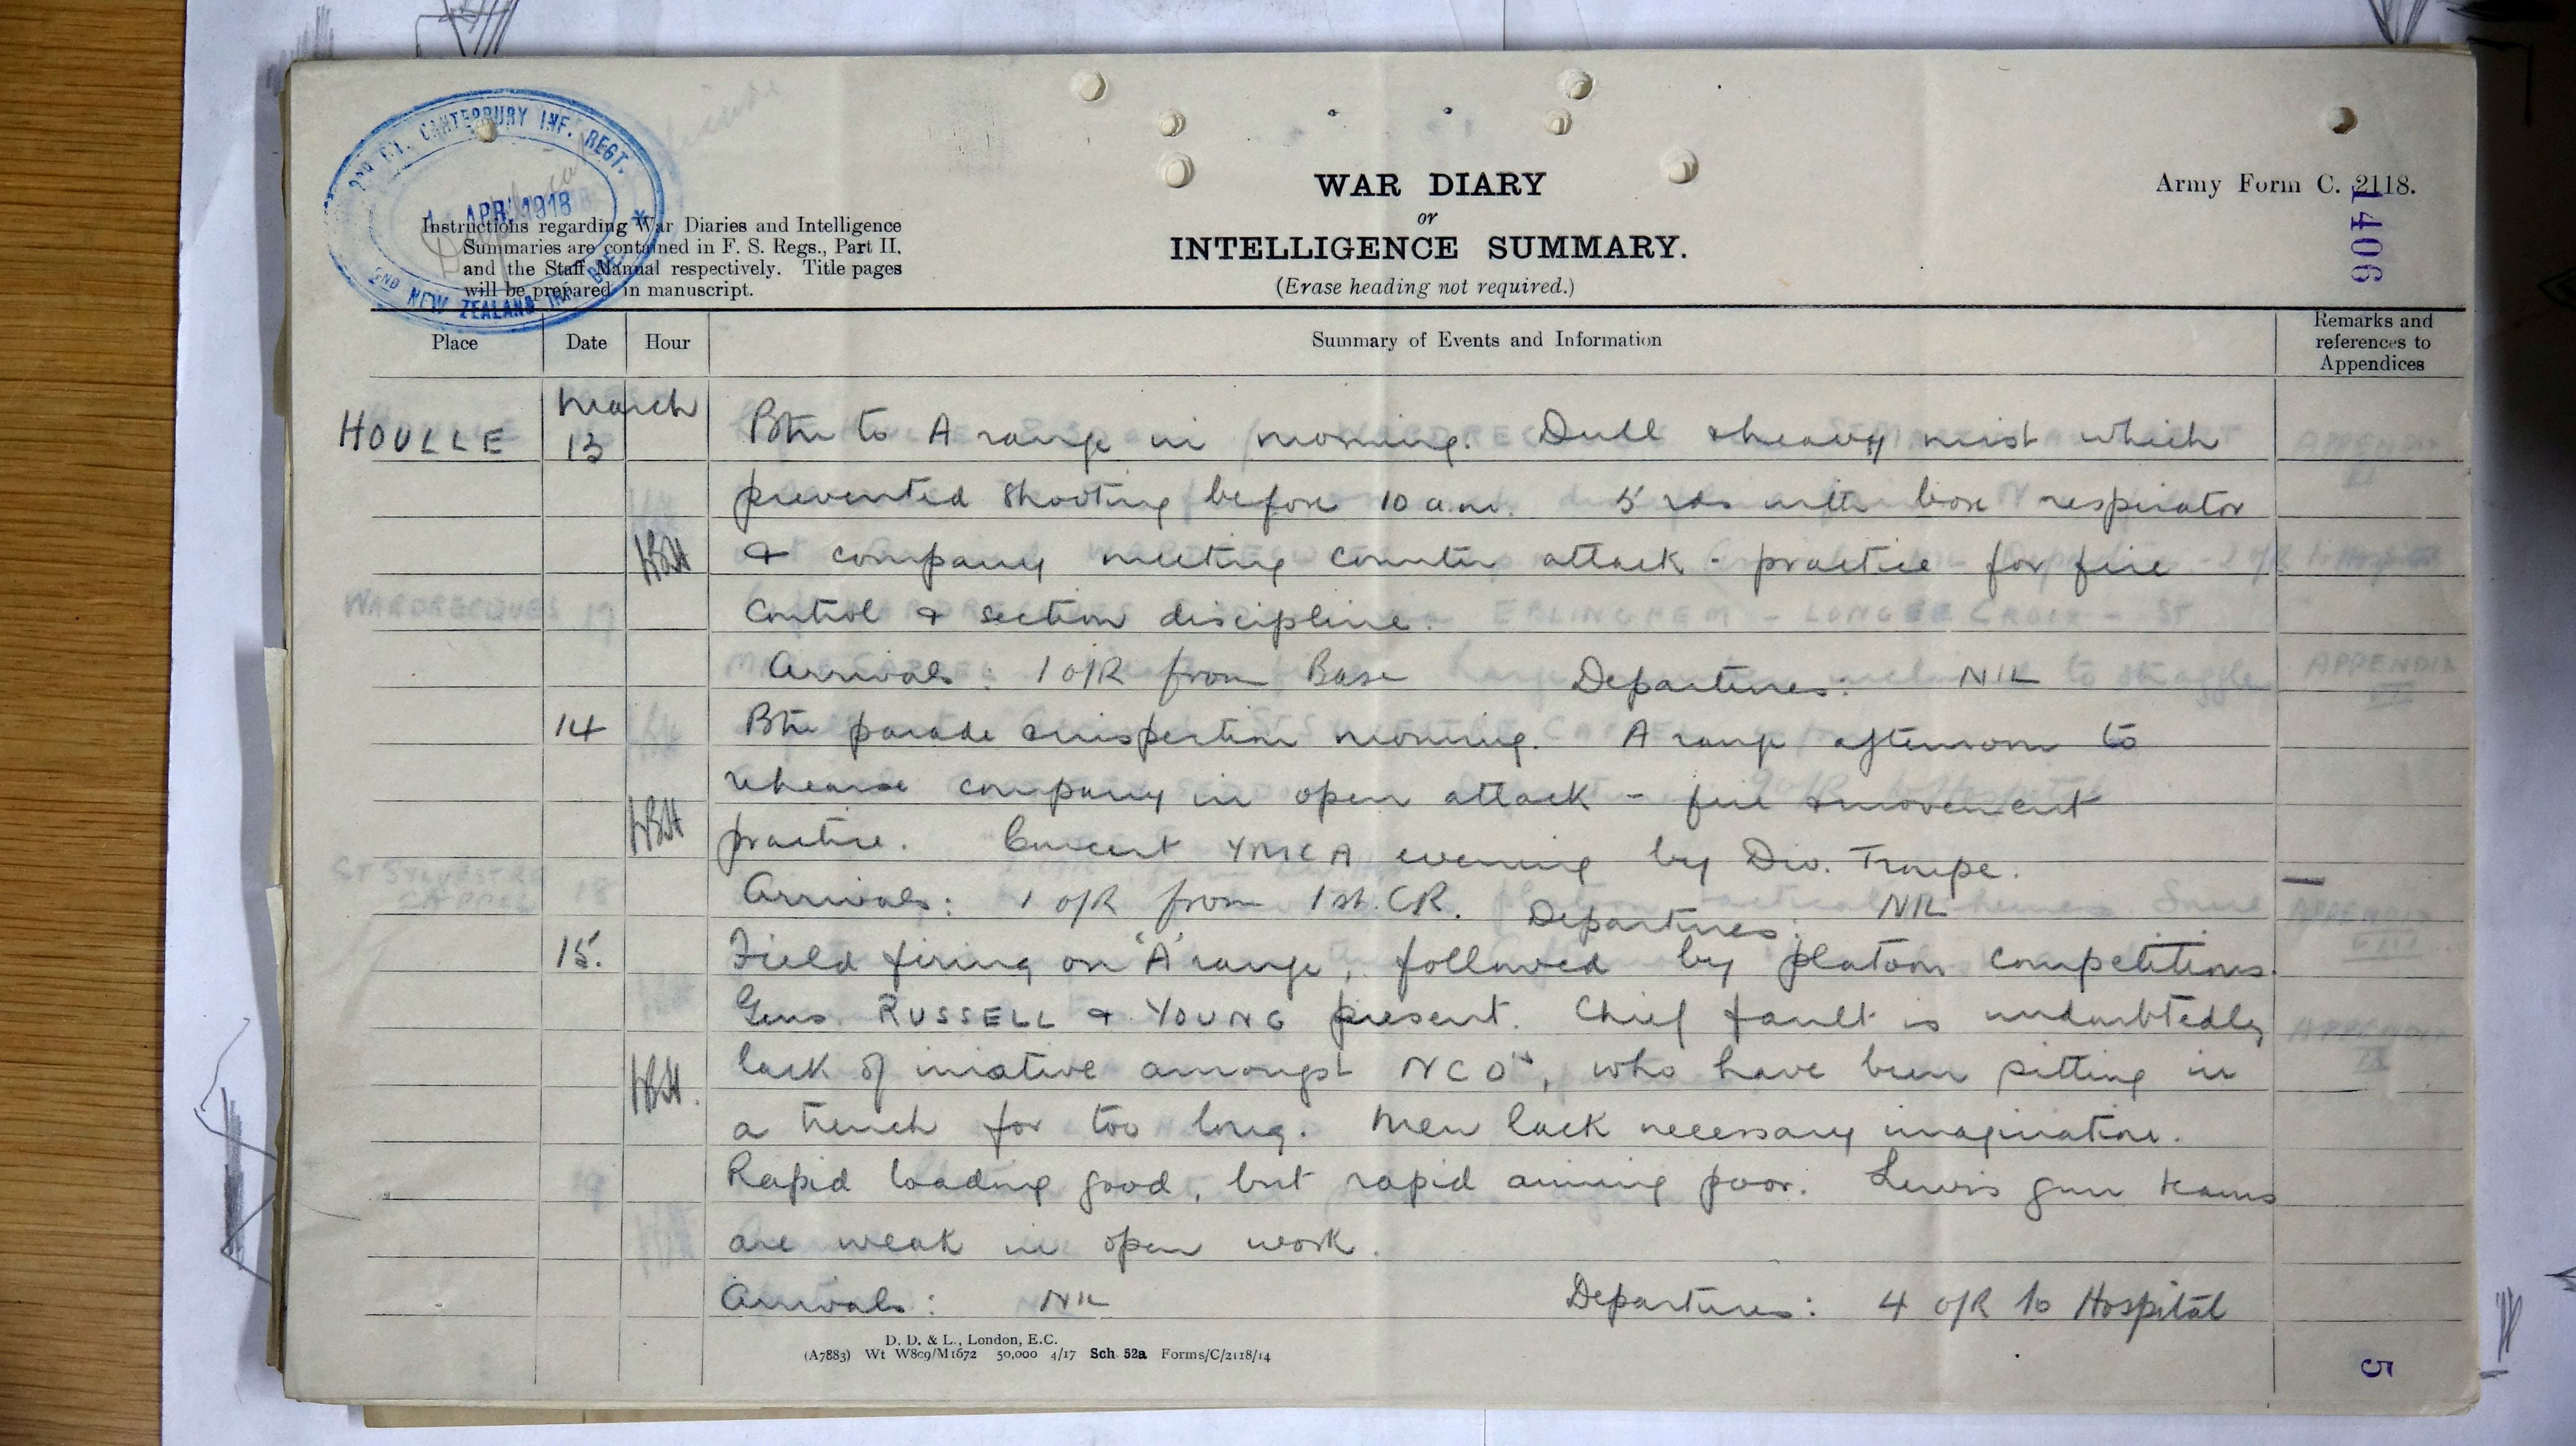 CANTERBURY INF. REGT.
APR. 1918
2ND NEW ZEALAND INF. BDE.
Duplicate
Instructions regarding War Diaries and Intelligence
Summaries are contained in F. S. Regs., Part II,
and the Staff Manual respectively. Title pages
will be prepared in manuscript.
WAR DIARY
or
INTELLIGENCE SUMMARY.
(Erase heading not required.)
Army Form C. 2118.
1406
Place Date Hour Summary of Events and Information Remarks and references to Appendices
March
HOULLE 13 Btn to A range in morning. Dull & heavy mist which
prevented shooting before 10 a.m. 5 rds with box respirator
HBH & company meeting counter attack - practice for fire
control & section discipline.
Arrivals: 1 O/R from Base Departures: NIL
14 Btn parade & inspection morning. A range afternoon to
rehearse company in open attack - fire & movement
HBH practice. Concert YMCA evening by Div. Troupe.
Arrivals: 1 O/R from 1st. CR. Departures: NIL
15. Field firing on 'A' range, followed by platoon competitions.
Gens. RUSSELL & YOUNG present. Chief fault is undoubtedly
HBH. lack of iniative amongst NCO's, who have been sitting in
a trench for too long. Men lack necessary imagination.
Rapid loading good, but rapid aiming poor. Lewis gun teams
are weak in open work.
Arrivals: NIL Departures: 4 O/R to Hospital
D. D. & L., London, E.C.
(A7883) Wt W8c9/M1672 50,000 4/17 Sch. 52a Forms/C/2118/14
5